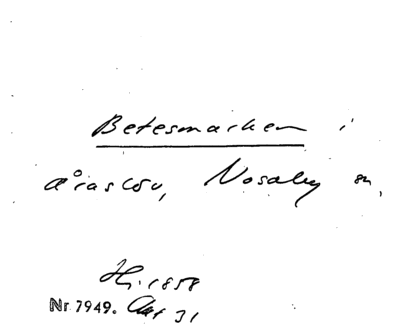 Betesmarken i
Åraslöv, Nosaby sn,
Hj. 1858
Nr 7949. Akt 31